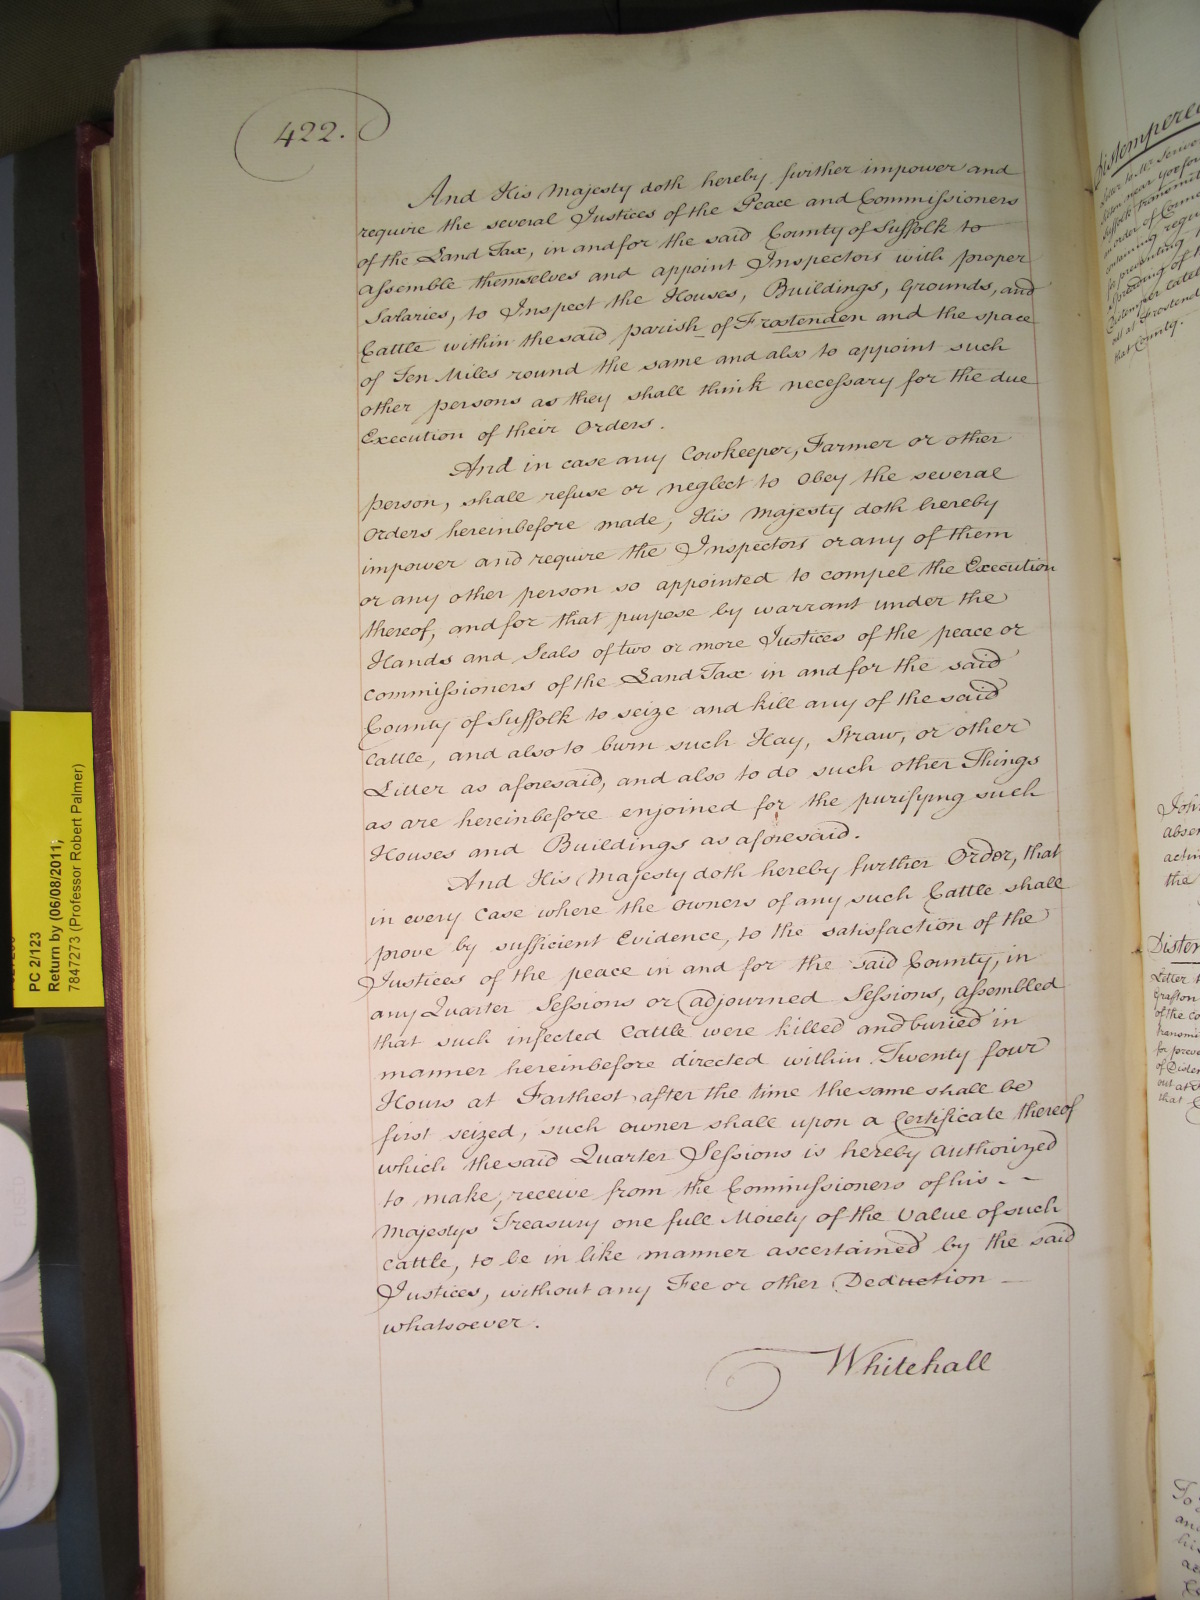 422.
And His Majesty doth hereby further impower and
require the several Justices of the Peace and Commissioners
of the Land Tax, in and for the said County of Suffolk to
assemble themselves and appoint Inspectors with proper
Salaries, to Inspect the Houses, Buildings, Grounds, and
Cattle within the said parish of Frostenden and the space
of Ten Miles round the same and also to appoint such
other persons as they shall think necessary for the due
Execution of their Orders.
And in case any Cowkeeper, Farmer or other
person, shall refuse or neglect to Obey the several
Orders hereinbefore made, His Majesty doth hereby
impower and require the Inspectors or any of them
or any other person so appointed to compel the Execution
thereof, and for that purpose by warrant under the
Hands and Seals of two or more Justices of the peace or
Commissioners of the Land Tax in and for the said
County of Suffolk to seize and kill any of the said
Cattle, and also to burn such Hay, Straw, or other
Litter as aforesaid, and also to do such other Things
as are hereinbefore enjoined for the purifying such
Houses and Buildings as aforesaid.
And His Majesty doth hereby further Order, that
in every Case where the Owners of any such Cattle shall
prove by sufficient Evidence, to the satisfaction of the
Justices of the peace in and for the said County, in
any Quarter Sessions or adjourned Sessions, assembled
that such infected Cattle were killed and buried in
manner hereinbefore directed within Twenty four
Hours at Farthest after the time the same shall be
first seized, such owner shall upon a Certificate thereof
which the said Quarter Sessions is hereby authorized
to make, receive from the Commissioners of his - -
Majestys Treasury one full Moiety of the Value of such
Cattle, to be in like manner ascertained by the said
Justices, without any Fee or other Deduction —
whatsoever.
Whitehall
PC 2/123
Return by (06/08/2011;
7847273 (Professor Robert Palmer)
Distempered
in Order of Counc
Spreading of t
out at Frostend
that County.
absen
the
Distem
Letter t
Grafton
of the Co
for preve
of Distem
that
To
and
his